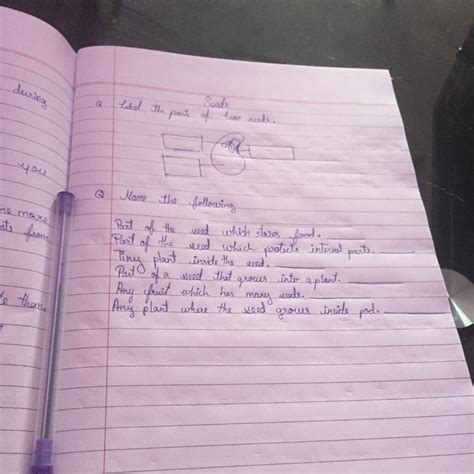 Seeds
Q Label the parts of bean seeds.
Q Name the following
Part of the seed which stores food.
Part of the seed which protects internal parts.
Tiny plant inside the seed.
Part of a seed that grows into a plant.
Any fruit which has many seeds.
Any plant where the seed grows inside pod.
during
you
more
from
them